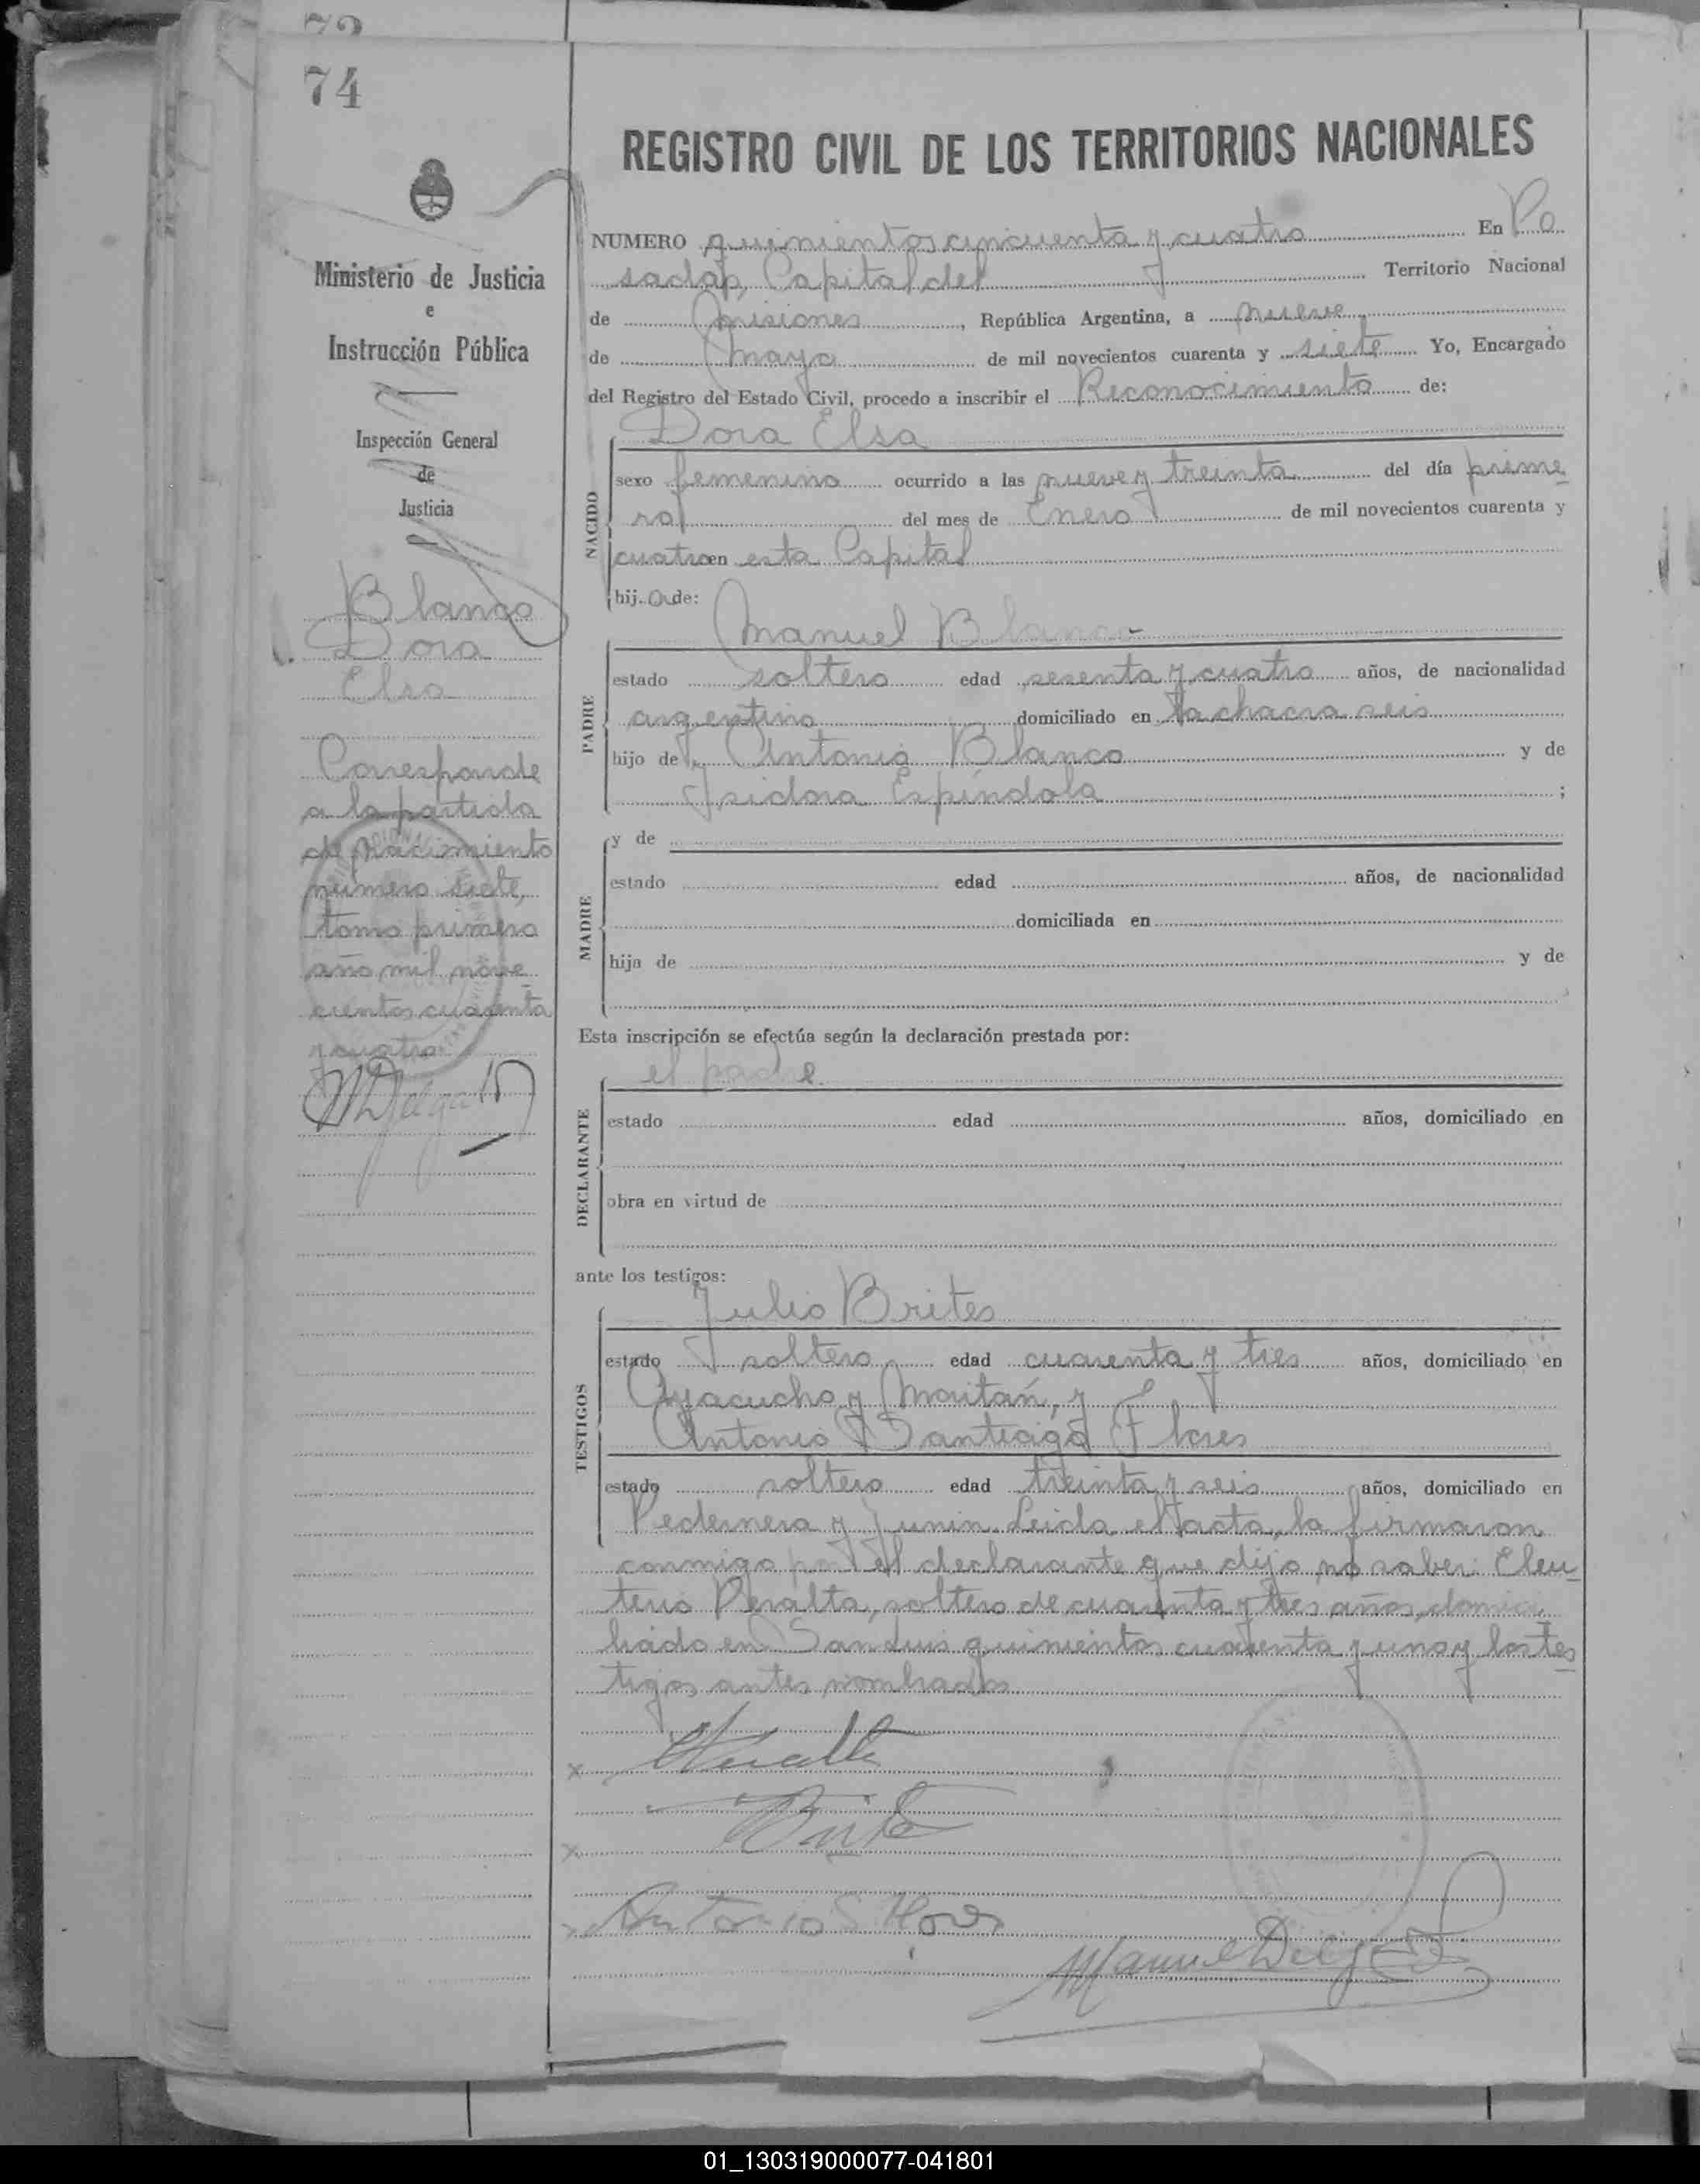 72
74
Ministerio de Justicia
e
Instrucción Pública
Inspección General
de
Justicia
Blanco
Dora
Elsa
Corresponde
a la partida
de nacimiento
número siete,
tomo primero
año mil nove-
cientos cuarenta
y cuatro
REGISTRO CIVIL DE LOS TERRITORIOS NACIONALES
NUMERO quinientos cincuenta y cuatro En Po
sadas, Capital del Territorio Nacional
de Misiones, República Argentina, a nueve
de mayo de mil novecientos cuarenta y siete Yo, Encargado
del Registro del Estado Civil, procedo a inscribir el Reconocimiento de:
Dora Elsa
NACIDO
sexo femenino ocurrido a las nueve y treinta del día prime
ro del mes de Enero de mil novecientos cuarenta y
cuatro en esta Capital
hij a de:
Manuel Blanco
PADRE
estado soltero edad sesenta y cuatro años, de nacionalidad
argentino domiciliado en la chacra seis
hijo de Antonio Blanco y de
Isidora Espíndola ;
MADRE
y de
estado edad años, de nacionalidad
domiciliada en
hija de y de
Esta inscripción se efectúa según la declaración prestada por:
el padre
DECLARANTE
estado edad años, domiciliado en
obra en virtud de
ante los testigos:
Julio Brites
TESTIGOS
estado soltero edad cuarenta y tres años, domiciliado en
Ayacucho y Moritán, y
Antonio Santiago Flores
estado soltero edad treinta y seis años, domiciliado en
Pedernera y Junin. Leida el acta, la firmaron
conmigo por el declarante que dijo no saber: Eleu
terio Peralta, soltero de cuarenta y tres años, domici
liado en San Luis quinientos cuarenta y uno y los tes
tigos antes nombrados
Antonio S Flores
Manuel Delgado
01_130319000077-041801